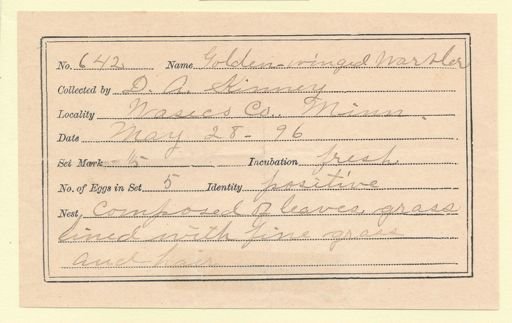 No. 642. Name Golden-winged Warbler
Collected by D. A. Kinney
Locality Waseca Co., Minn.
Date May 28 - 96
Set Mark 1/5 Incubation fresh
No. of Eggs in Set 5 Identity positive
Nest, Composed of leaves, grass
lined with fine grass
and hair